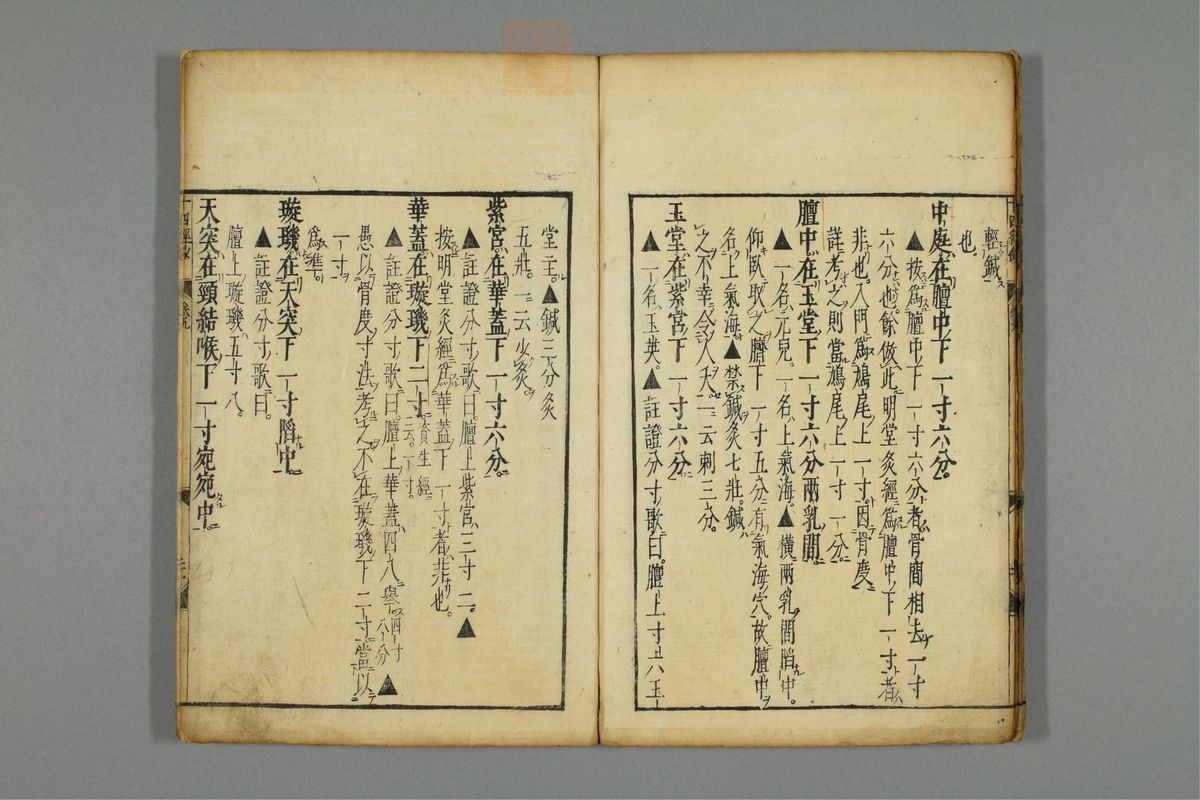 輕鍼
也。
中庭在膻中下一寸六分。
▲按爲膻中下一寸六分者骨間相去一寸
六分也餘倣此明堂灸經爲膻中下一寸者
非也入門爲鳩尾上一寸因骨度
詳考之則當鳩尾上一寸一分。
膻中在玉堂下一寸六分兩乳間。
▲一名元兒。一名上氣海。▲橫兩乳間陷中。
仰臥取之臍下一寸五分有氣海穴故膻中
名上氣海▲禁鍼灸七壯。鍼
之不幸令人夭。一云刺三分。
玉堂在紫宮下一寸六分
▲一名玉英。▲註證分寸歌曰。膻上寸六玉
堂主。▲鍼三分灸
五壯。一云少灸。
紫宮在華蓋下一寸六分。
▲註證分寸歌曰。膻上紫宮三寸二。▲
按明堂灸經爲華蓋下一寸者非也。
華蓋在璇璣下二寸。資生經云。一寸。
▲註證分寸歌曰。膻上華蓋四八舉四寸八分▲
愚以骨度寸法考之不在璇璣下二寸當以
一寸
爲準。
璇璣在天突下一寸陷中
▲註證分寸歌曰。
膻上璇璣五寸八。
天突在頸結喉下一寸宛宛中。
十四經
卷九